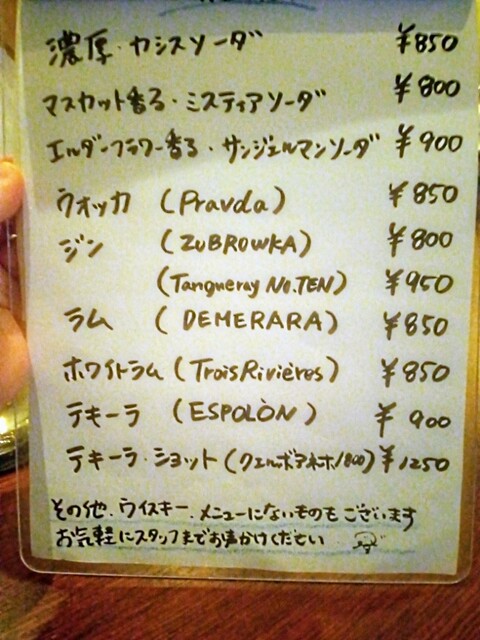 濃厚・カシスソーダ ¥850
マスカット香る・ミスティアソーダ ¥800
エルダーフラワー香る・サンジェルマンソーダ ¥900
ウオッカ (Pravda) ¥850
ジン (ZUBROWKA) ¥800
(Tangueray No.TEN) ¥950
ラム (DEMERARA) ¥850
ホワイトラム (Trois Rivières) ¥850
テキーラ (ESPOLÒN) ¥900
テキーラ・ショット (クエルボアネホ1800) ¥1250
その他、ウイスキー、メニューにないものもございます
お気軽にスタッフまでお声かけください